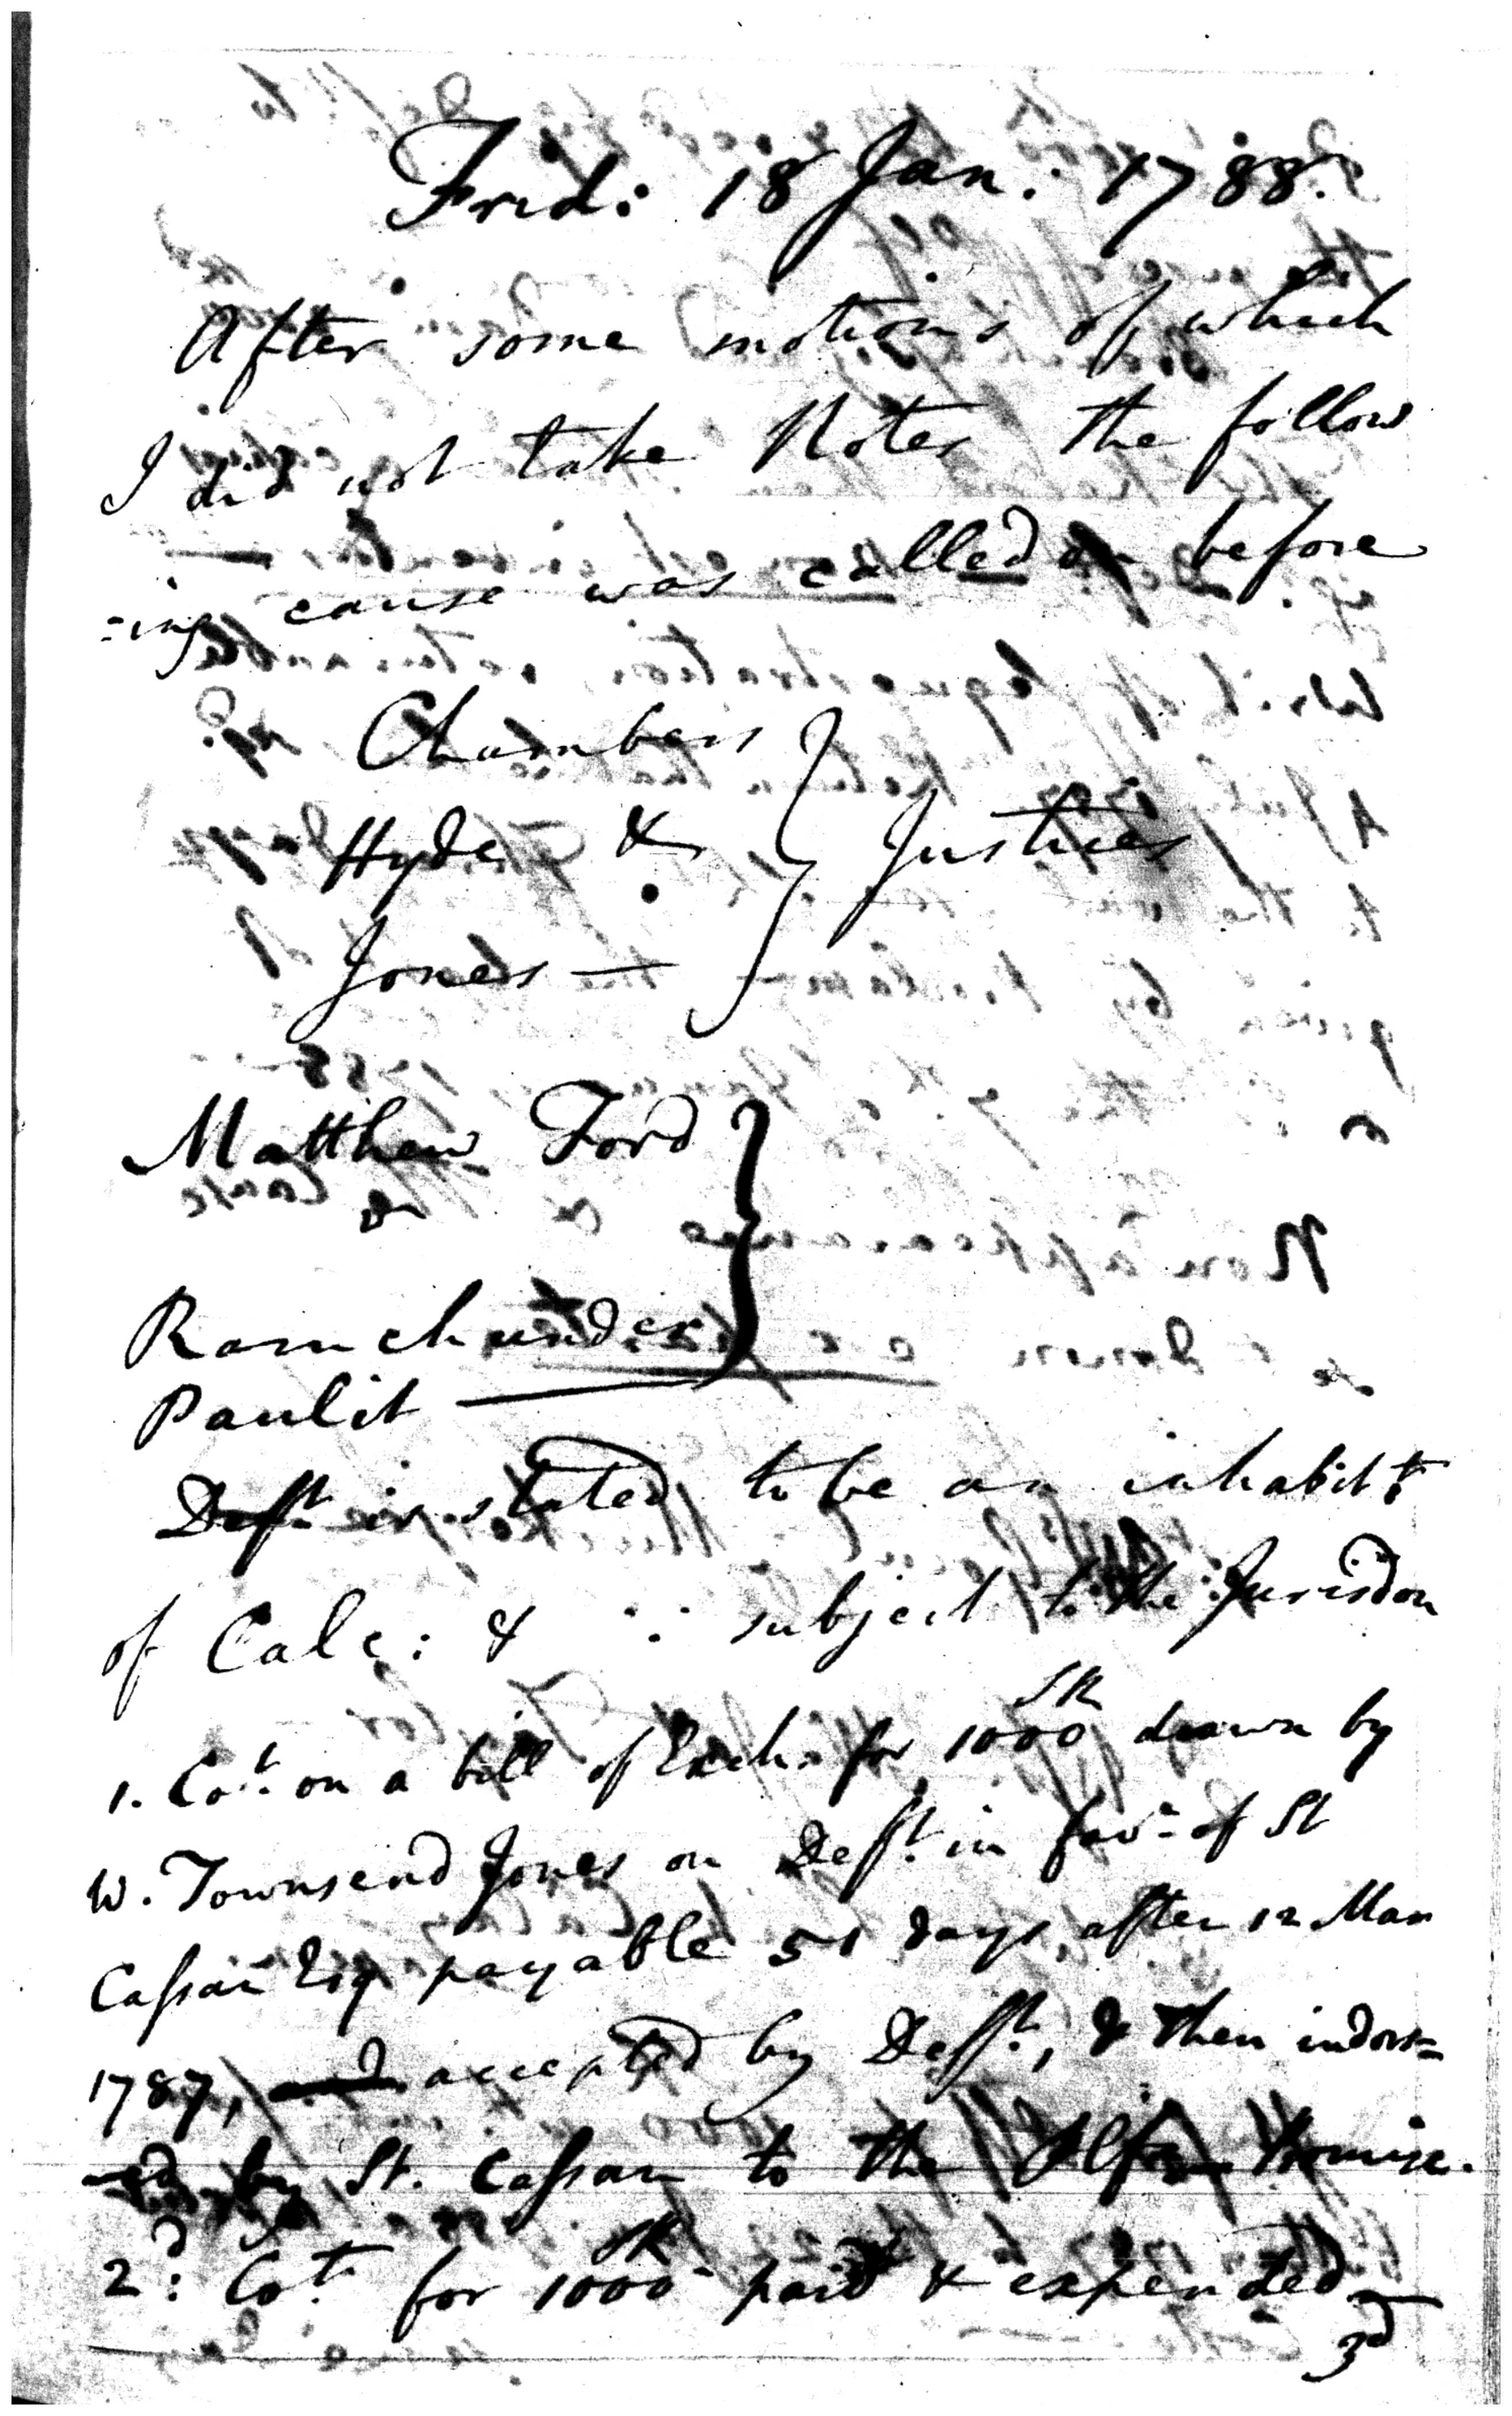 Frid: 18 Jan: 1788.
After some motions of which
I did not take Notes the follow
=ing cause was called on before
Chambers
Hyde & Justices
Jones —
Matthew Ford
&
Ramchunder
Paulit
Deft. is stated to be an inhabitt.
of Calc: & ∴ subject to the Jurisdon
1. Cot. on a bill of Exch: for 1000 SR drawn by
W. Townsend Jones on Deft. in favr. of St
Cassan Esq payable 51 days after 12 Mar
1787, accepted by Deft., & then indors=
=ed by St. Cassan to the Plf promise.
2d: Cot. for 1000 SR paid & expended
3d